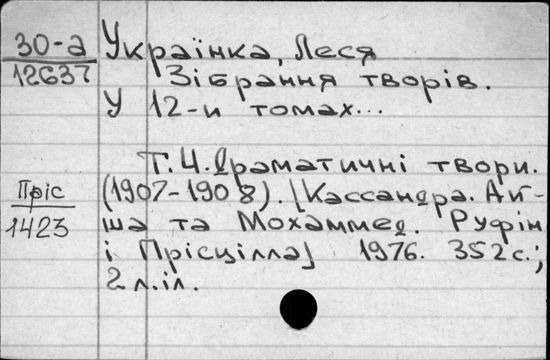 30-а
12637
Українка, Леся
Зібрання творів.
У 12-и томах...
Т. 4. Драматичні твори.
(1907-1908). [Кассандра. Ай-
ша та Мохаммед. Руфін
і Прісцілла] 1976. 352 с.;
2 л. іл.
Пріс
1423